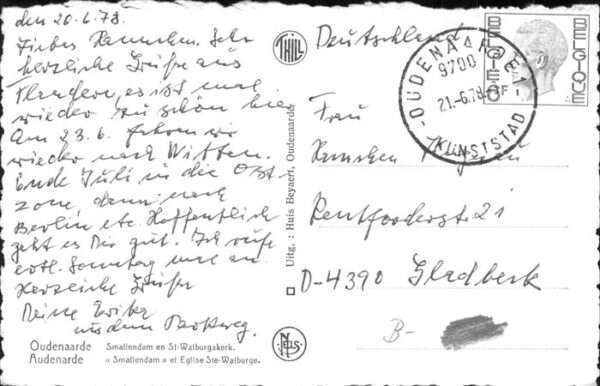 den 20.6.78.
Liebes Hannchen. Sehr
herzliche Grüße aus
Flandern, es ist mal
wieder zu schön hier
Am 23.6. fahren wir
wieder nach Witten.
Ende Juli in die Ost
zone, dann nach
Berlin etc. Hoffentlich
geht es Dir gut. Ich rufe
evtl. Sonntag mal an
Herzliche Grüße
Deine
aus dem
Oudenaarde
Audenarde
Smallendam en St-Walburgakerk.
« Smallendam » et Eglise Ste-Walburge.
THILL
Uitg. : Huis Beyaert, Oudenaarde
NELS
Deutschland
OUDENAARDE 1
9700
21.-6.78
KUNSTSTAD
BELGIË
BELGIQUE
F
Frau
Hannchen
Rentforderstr. 21
D-4390 Gladbeck
B-